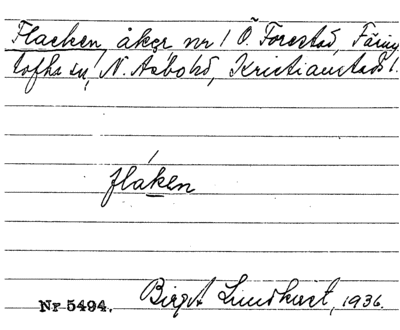 Flacken, åker nr 1 Ö. Forestad, Färing
tofta sn, N. Åsbohd, Kristianstads l.
flaken
Nr 5494. Birgit Lundkvist, 1936.